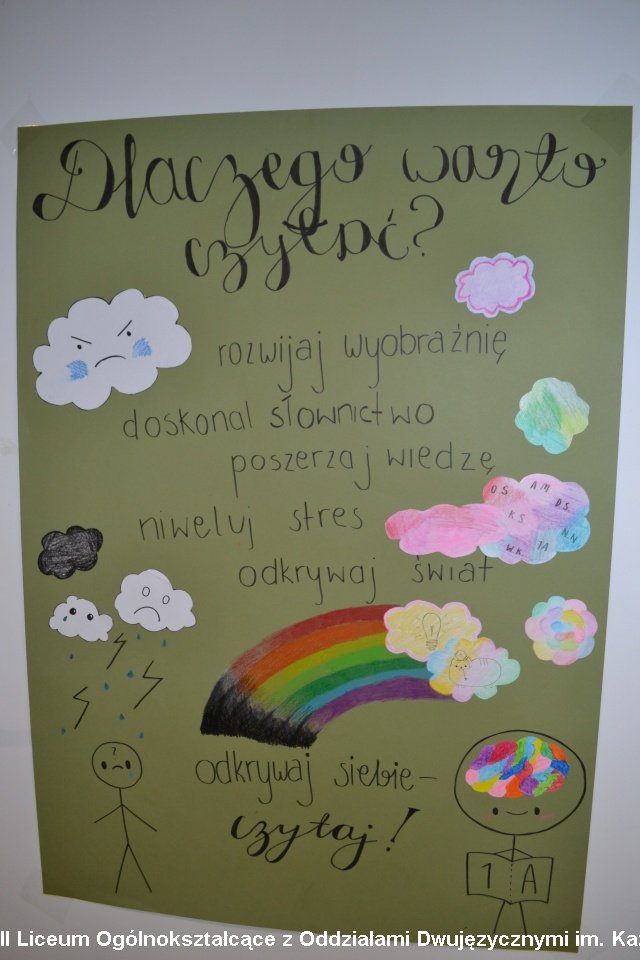 Dlaczego warto
czytać?
rozwijaj wyobraźnię
doskonal słownictwo
poszerzaj wiedzę
niweluj stres
O.S. A.M. D.S.
K.S. N.N
W.K. 1A
odkrywaj świat
?
odkrywaj siebie –
czytaj!
1 A
II Liceum Ogólnokształcące z Oddziałami Dwujęzycznymi im. Ka